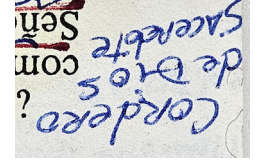 Cordero
de Dios
Sacerdote
?
com
Seño